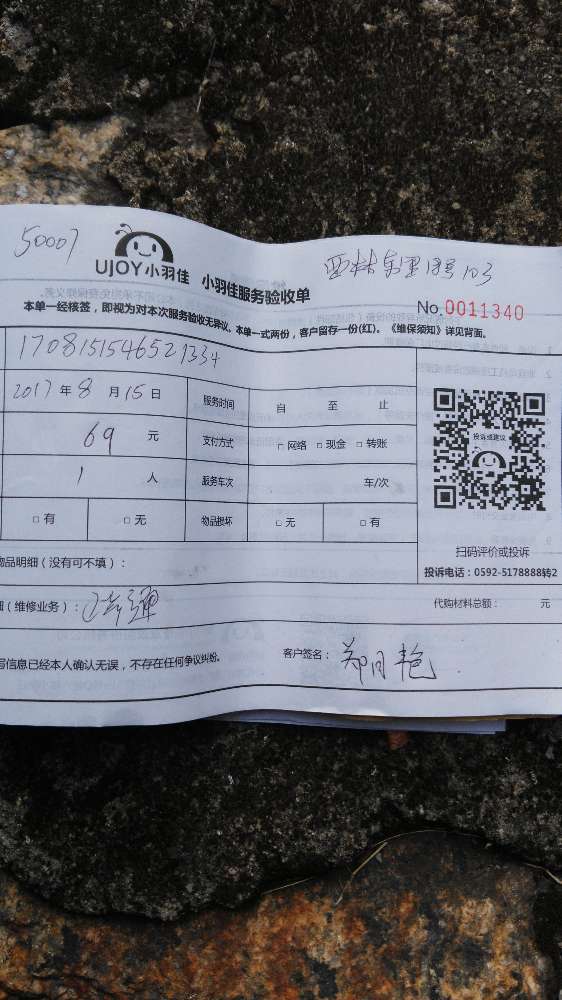 50007
UJOY小羽佳 小羽佳服务验收单
西林东里18号103
No.0011340
本单一经核签，即视为对本次服务验收无异议。本单一式两份，客户留存一份(红)。《维保须知》详见背面。
2017年8月15日 服务时间 自 至 止
69 元 支付方式 □网络 □现金 □转账
1 人 服务车次 车/次
□有 □无 物品损坏 □无 □有
投诉或建议
扫码评价或投诉
投诉电话：0592-5178888转2
物品明细（没有可不填）：
（维修业务）： 代购材料总额： 元
写信息已经本人确认无误，不存在任何争议纠纷。 客户签名：郑月艳